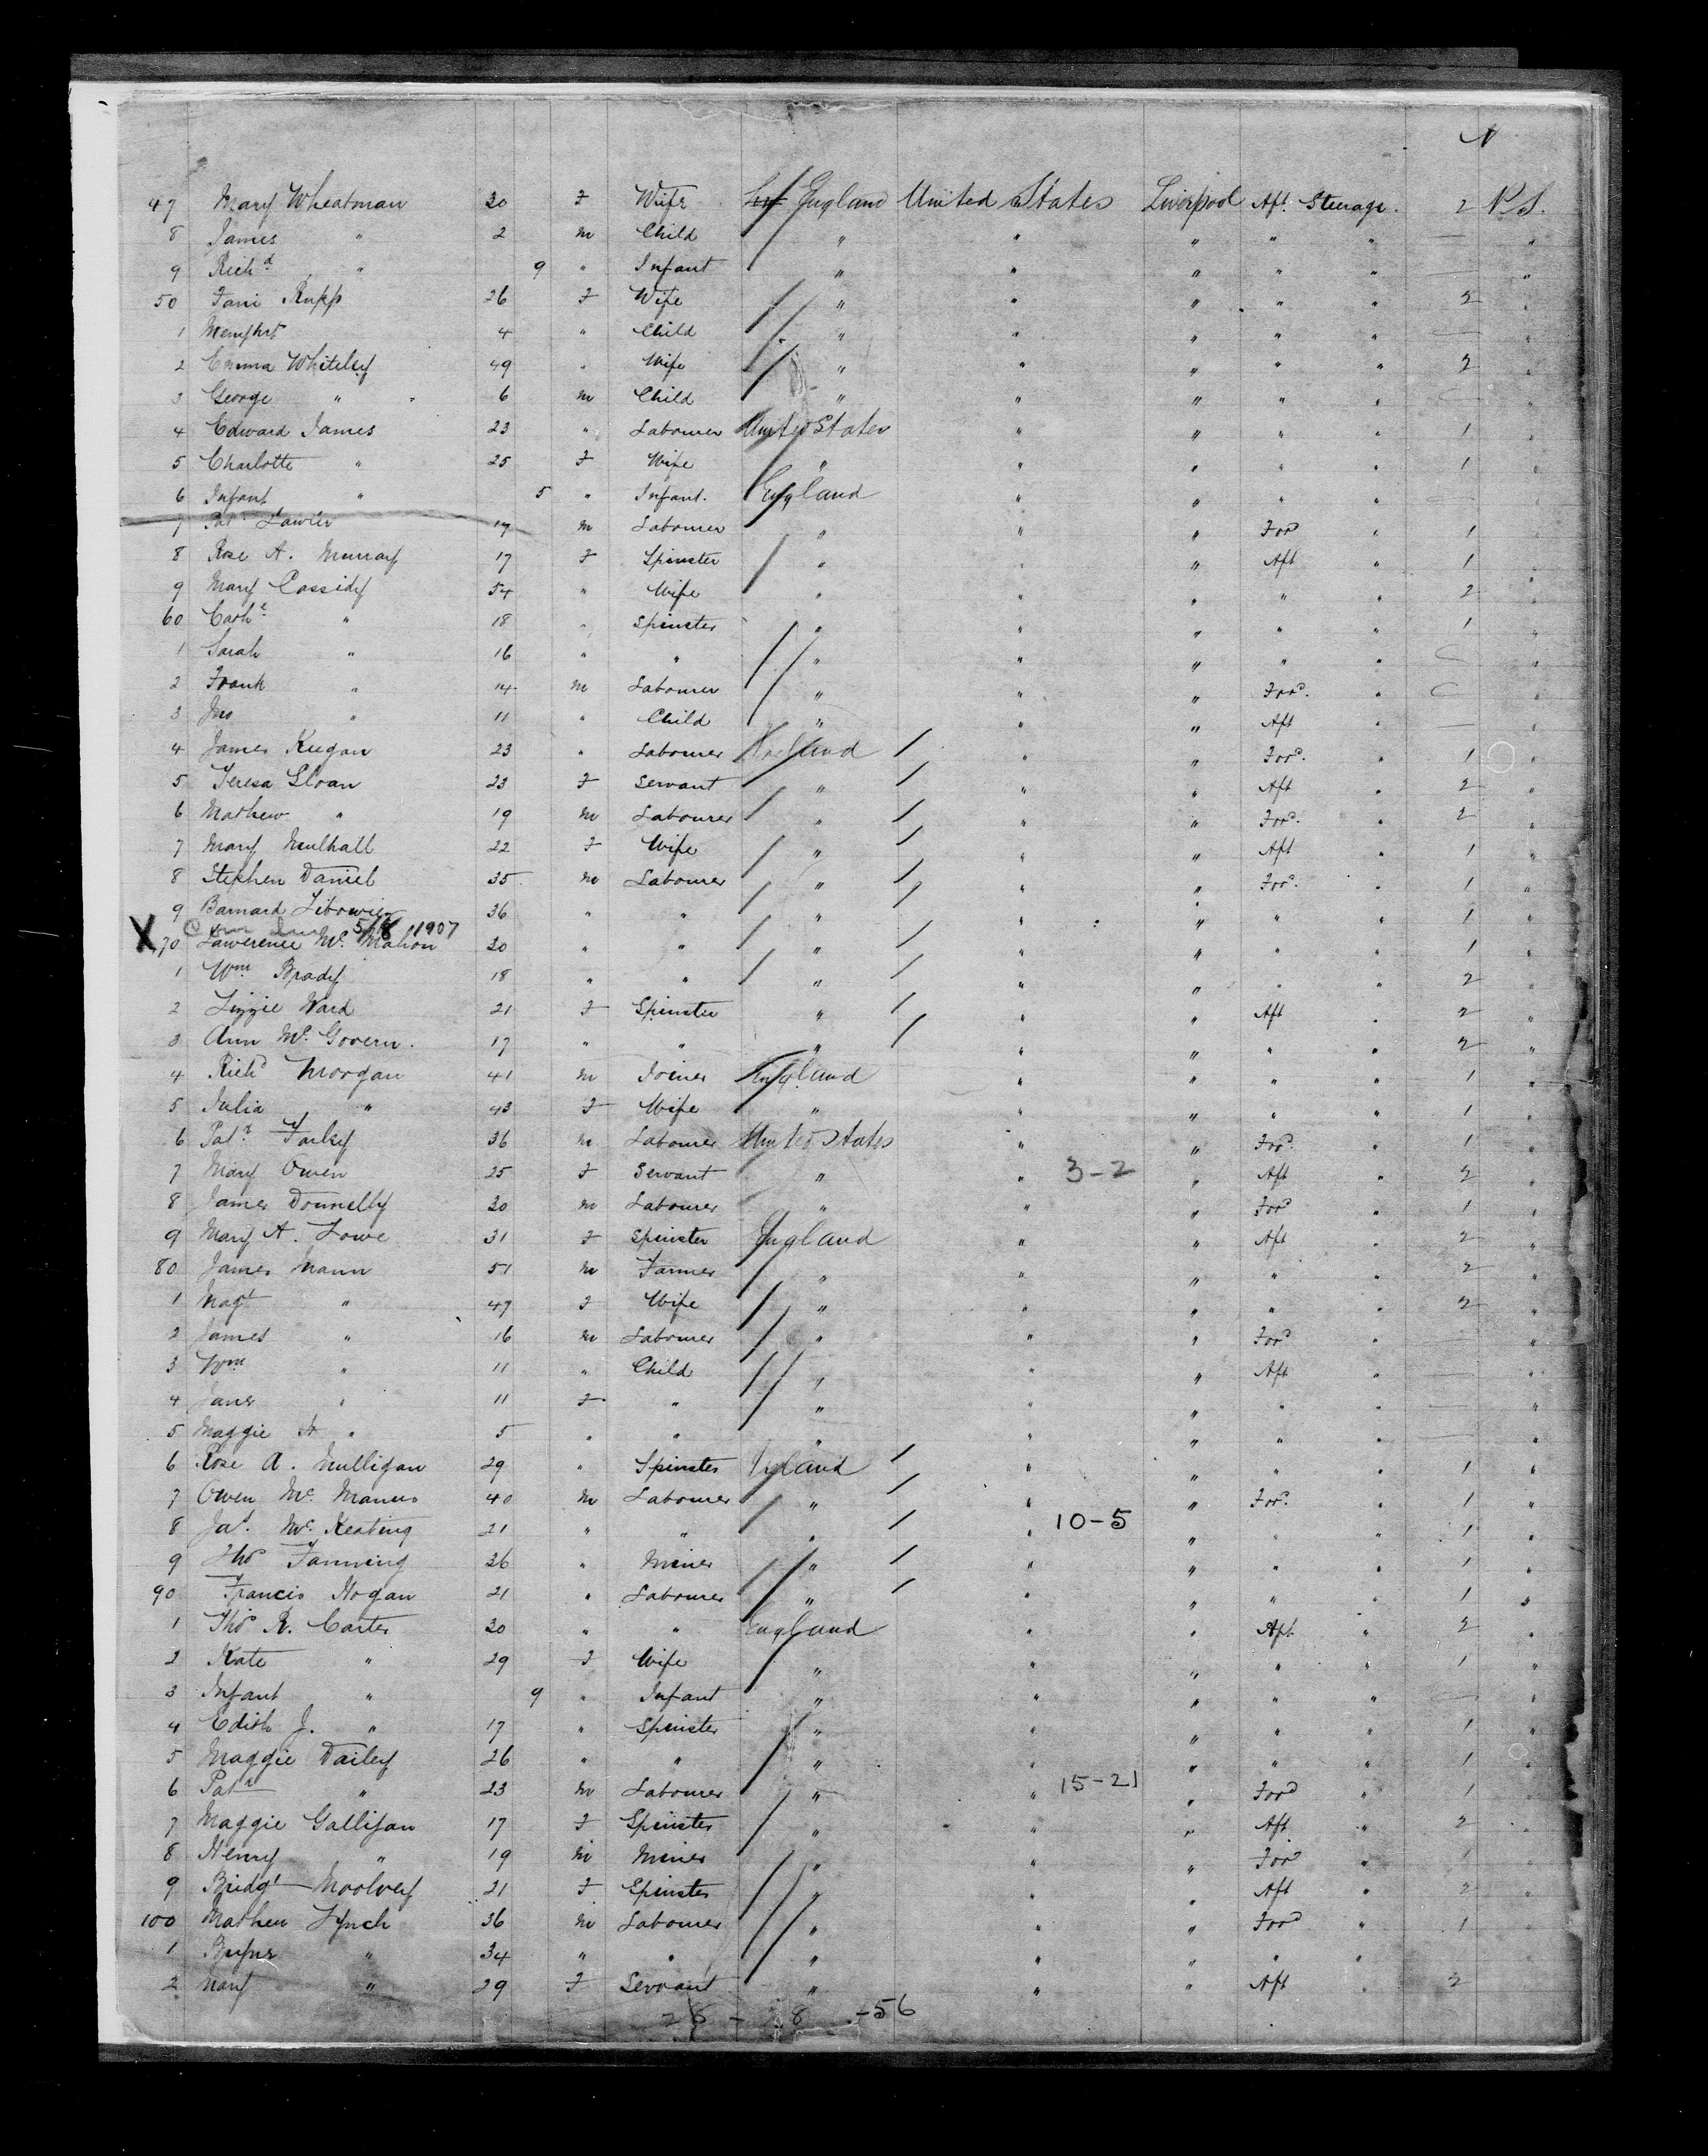 47 Mary Wheatman 30 F Wife England United States Liverpool Aft Steerage. 2 N.S.
8 James " 2 m Child " " " " " — "
9 Richd " 9 " Infant " " " " " — "
50 Rupp 26 F Wife " " " " " 2 "
1 4 " Child " " " " " — "
2 Emma Whiteley 49 " Wife " " " " " 2 "
3 George " 6 m Child " " " " " — "
4 Edward James 23 " Labourer United States " " " " 1 "
5 Charlotte " 25 F Wife " " " " " 1 "
6 Infant " 5 " Infant. England " " " " — "
7 Patk Lawler 17 m Labourer " " " Ford " 1 "
8 Rose A. Murray 17 F Spinster " " " Aft " 1 "
9 Mary Cassidy 54 " Wife " " " " " 2 "
60 Cathe " 18 " Spinster " " " " " 1 "
1 Sarah " 16 " " " " " " " — "
2 Frank " 14 m Labourer " " " Ford. " — "
3 Jno " 11 " Child " " " Aft " — "
4 James Keegan 23 " Labourer Ireland " " Ford. " 1 "
5 Teresa Sloan 23 F Servant " " " Aft " 2 "
6 Mathew " 19 m Labourer " " " Ford. " 2 "
7 Mary Mulhall 22 F Wife " " " Aft " 1 "
8 Stephen Daniel 35 m Labourer " " " Ford. " 1 "
9 Barnard 36 " " " " " " " 1 "
5/8 1907
X 70 Lawerence Mc. Mahon 30 " " " " " " " 1 "
1 Wm Brady 18 " " " " " " " 2 "
2 Lizzie Ward 21 F Spinster " " " Aft " 2 "
3 Ann Mc. Govern. 17 " " " " " " " 2 "
4 Richd Morgan 41 m Joiner England " " " " 1 "
5 Julia " 43 F Wife " " " " " 1 "
6 Patk Farley 36 m Labourer United States " " Ford. " 1 "
7 Mary Owen 25 F Servant " " 3-2 " Aft " 2 "
8 James Donnelly 30 m Labourer " " " Ford " 1 "
9 Mary A. Lowe 31 F Spinster England " " Aft " 2 "
80 James Mann 51 m Farmer " " " " " 2 "
1 Magt " 47 F Wife " " " " " 2 "
2 James " 16 m Labourer " " " Ford " — "
3 Wm " 11 " Child " " " Aft " — "
4 Jane " 11 F " " " " " " — "
5 Maggie " 5 " " " " " " " — "
6 Rose A. Mulligan 29 " Spinster Ireland " " " " 1 "
7 Owen Mc. Manus 40 m Labourer " " " Ford. " 1 "
8 Jas. Mc. Keating 21 " " " " 10-5 " " " 1 "
9 Thos Fanning 36 " Miner " " " " " 1 "
90 Francis Hogan 21 " Labourer " " " " " 1 "
1 Thos R. Carter 30 " " England " " Aft " 2 "
2 Kate " 29 F Wife " " " " " 1 "
3 Infant " 9 " Infant " " " " " — "
4 Edith J. " 17 " Spinster " " " " " 1 "
5 Maggie Dailey 26 " " " " " " " 1 "
6 Patk " 23 m Labourer " " 15-21 " Ford " 1 "
7 Maggie Galligan 17 F Spinster " " " Aft " 2 "
8 Henry " 19 m Miner " " " Ford " 1 "
9 Bridgt 21 F Spinster " " " Aft " 2 "
100 Mathew Lynch 36 m Labourer " " " Ford " 1 "
1 " 34 " " " " " " "
2 Mary " 29 F Servant " " " Aft 2
-56